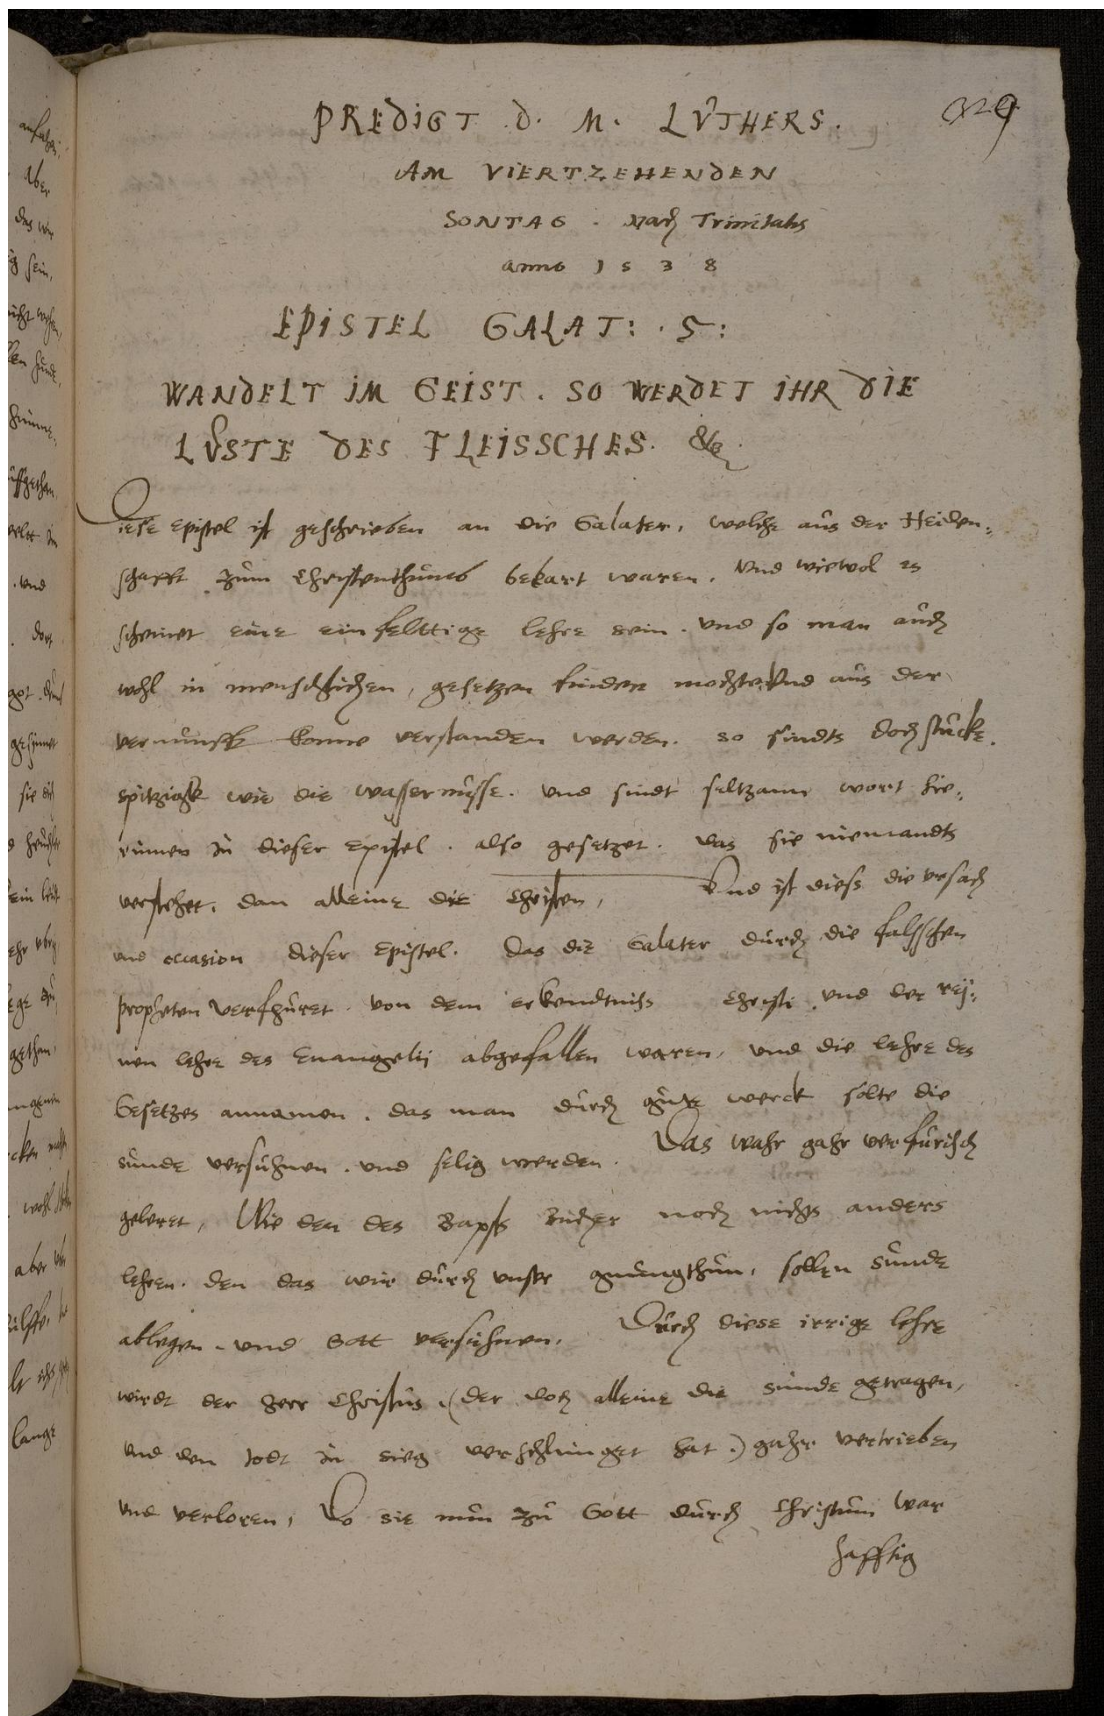 329
PREDIGT D. M. LUTHERS.
AM VIERTZEHENDEN
SONTAG. Nach Trinitatis
anno 1538
EPISTEL GALAT: .5:
WANDELT IM GEIST. SO WERDET IHR DIE
LŮSTE DES FLEISSCHES. &c.
Diese Epistel ist geschrieben an die Galater, welche aus der Heiden-
schafft zum Christenthumb bekart waren. Und wiewol es
scheinet eine einfelttige lehre sein. und so man auch
wohl in menschlichen, gesetzen finden mochte Und aus der
vernunfft konne verstanden werden. so sindts doch stucke.
spitzigk wie die wassernusse. und sindt seltzame wort hie-
rinnen in dieser Epistel. also gesetzet. das sie niemandts
verstehet, dan alleine die Christen, Und ist diess die ursach
und occasion dieser Epistel. Das die Galater durch die falsschen
propheten verfhuret. von dem erkendtniss Christi. und der rej-
nen lehre des Euangelij abgefallen waren, und die lehre des
Gesetzes annamen. das man durch gute werck solte die
sunde versuhnen. und selig werden. Das wahr gahr verfurisch
geleret, Wie den des Bapsts Bucher noch nichts anders
lehren. den das wir durch unser gnungthun, sollen sunde
ablegen. und Gott versuhnen, Durch diese irrige lehre
wirdt der Herr Christus. (der doch alleine die sunde getragen,
und den todt in sieg verschlunget hat.) gahr vertrieben
und verloren, Do sie nun zu Gott durch Christum war
hafftig